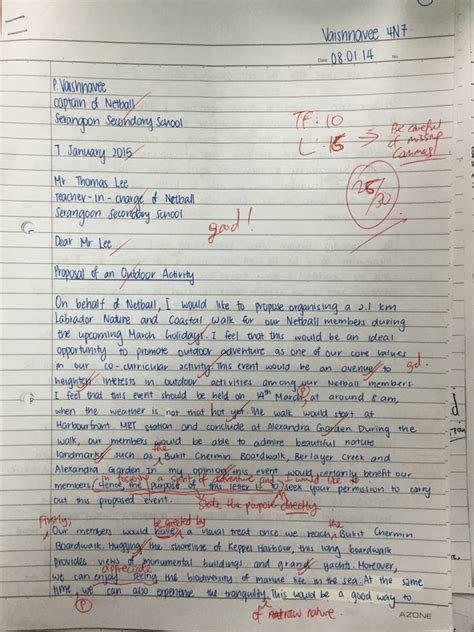 Vaishnavee 4N7
Date 08.01.14 No.
P. Vaishnavee
captain of Netball
Serangoon Secondary School
TF: 10
L: 15 → Be careful of missing commas!
7 January 2015
25/30
Mr Thomas Lee
teacher-in-charge of Netball
Serangoon Secondary School
good!
Dear Mr Lee
Proposal of an Outdoor Activity
On behalf of Netball, I would like to propose organising a 2.1 km
Labrador Nature and Coastal Walk for our Netball members during
the upcoming March holidays. I feel that this would be an ideal
opportunity to promote outdoor adventure as one of our core values
in our co-curricular activity. This event would be an avenue to gd.
heighten interests in outdoor activities among our Netball members.
I feel that this event should be held on 14th March, at around 8 am, P
when the weather is not that hot yet. The walk would start at
Harbourfront MRT station and conclude at Alexandra Garden. During the
walk, our members would be able to admire beautiful nature
the
landmarks such as Bukit Chermin Boardwalk, Berlayer Creek and
Alexandra Garden. In my opinion, this event would certainly benefit our
in fostering a spirit of adventure and I would like to
members. Hence, the purpose of this letter is to seek your permission to carry
out this proposed event. State the purpose directly.
Firstly, be greeted by the
Our members would have a visual treat once we reach Bukit Chermin
Boardwalk. Hugging the shoreline of Keppel Harbour, this long boardwalk
provides views of monumental buildings and grand yachts. Moreover,
appreciate
we can enjoy seeing the biodiversity of marine life in the sea. At the same
time, we can also experience the tranquility. This would be a good way to
P of nature.
AZONE